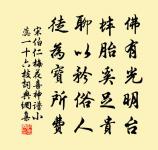 佛有光明台
蚌胎奚足貴
聊以矜俗人
徒為寶所費
宋伯仁梅花喜神譜小
蕊一十六枝詞典網集